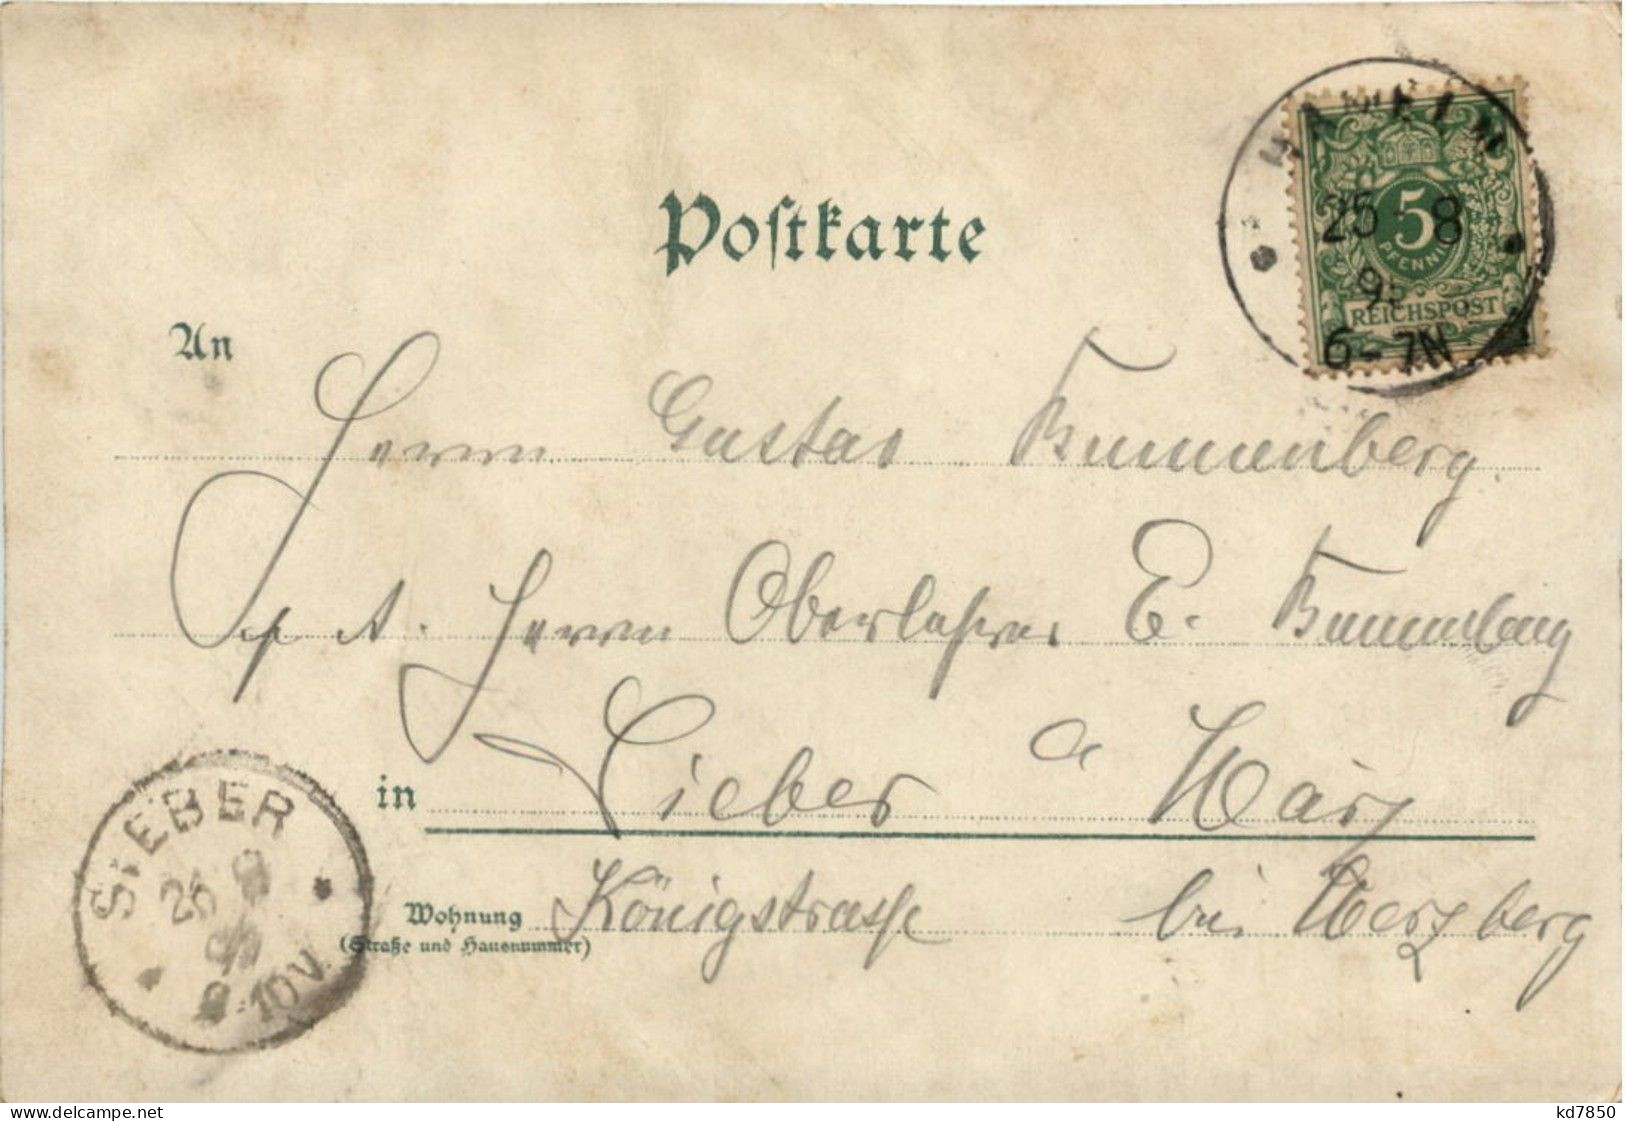 Postkarte
HAMELN
25 8
9
6-7N
5
PFENNIG
REICHSPOST
An
Herrn Gustav Brunnenberg.
p. A. Herrn Oberlehrer E. Brunnenberg
in Sieber a Harz
Wohnung Königstrasse bei Herzberg
(Straße und Hausnummer)
SIEBER
26 8
8-10V.
www.delcampe.net
kd7850